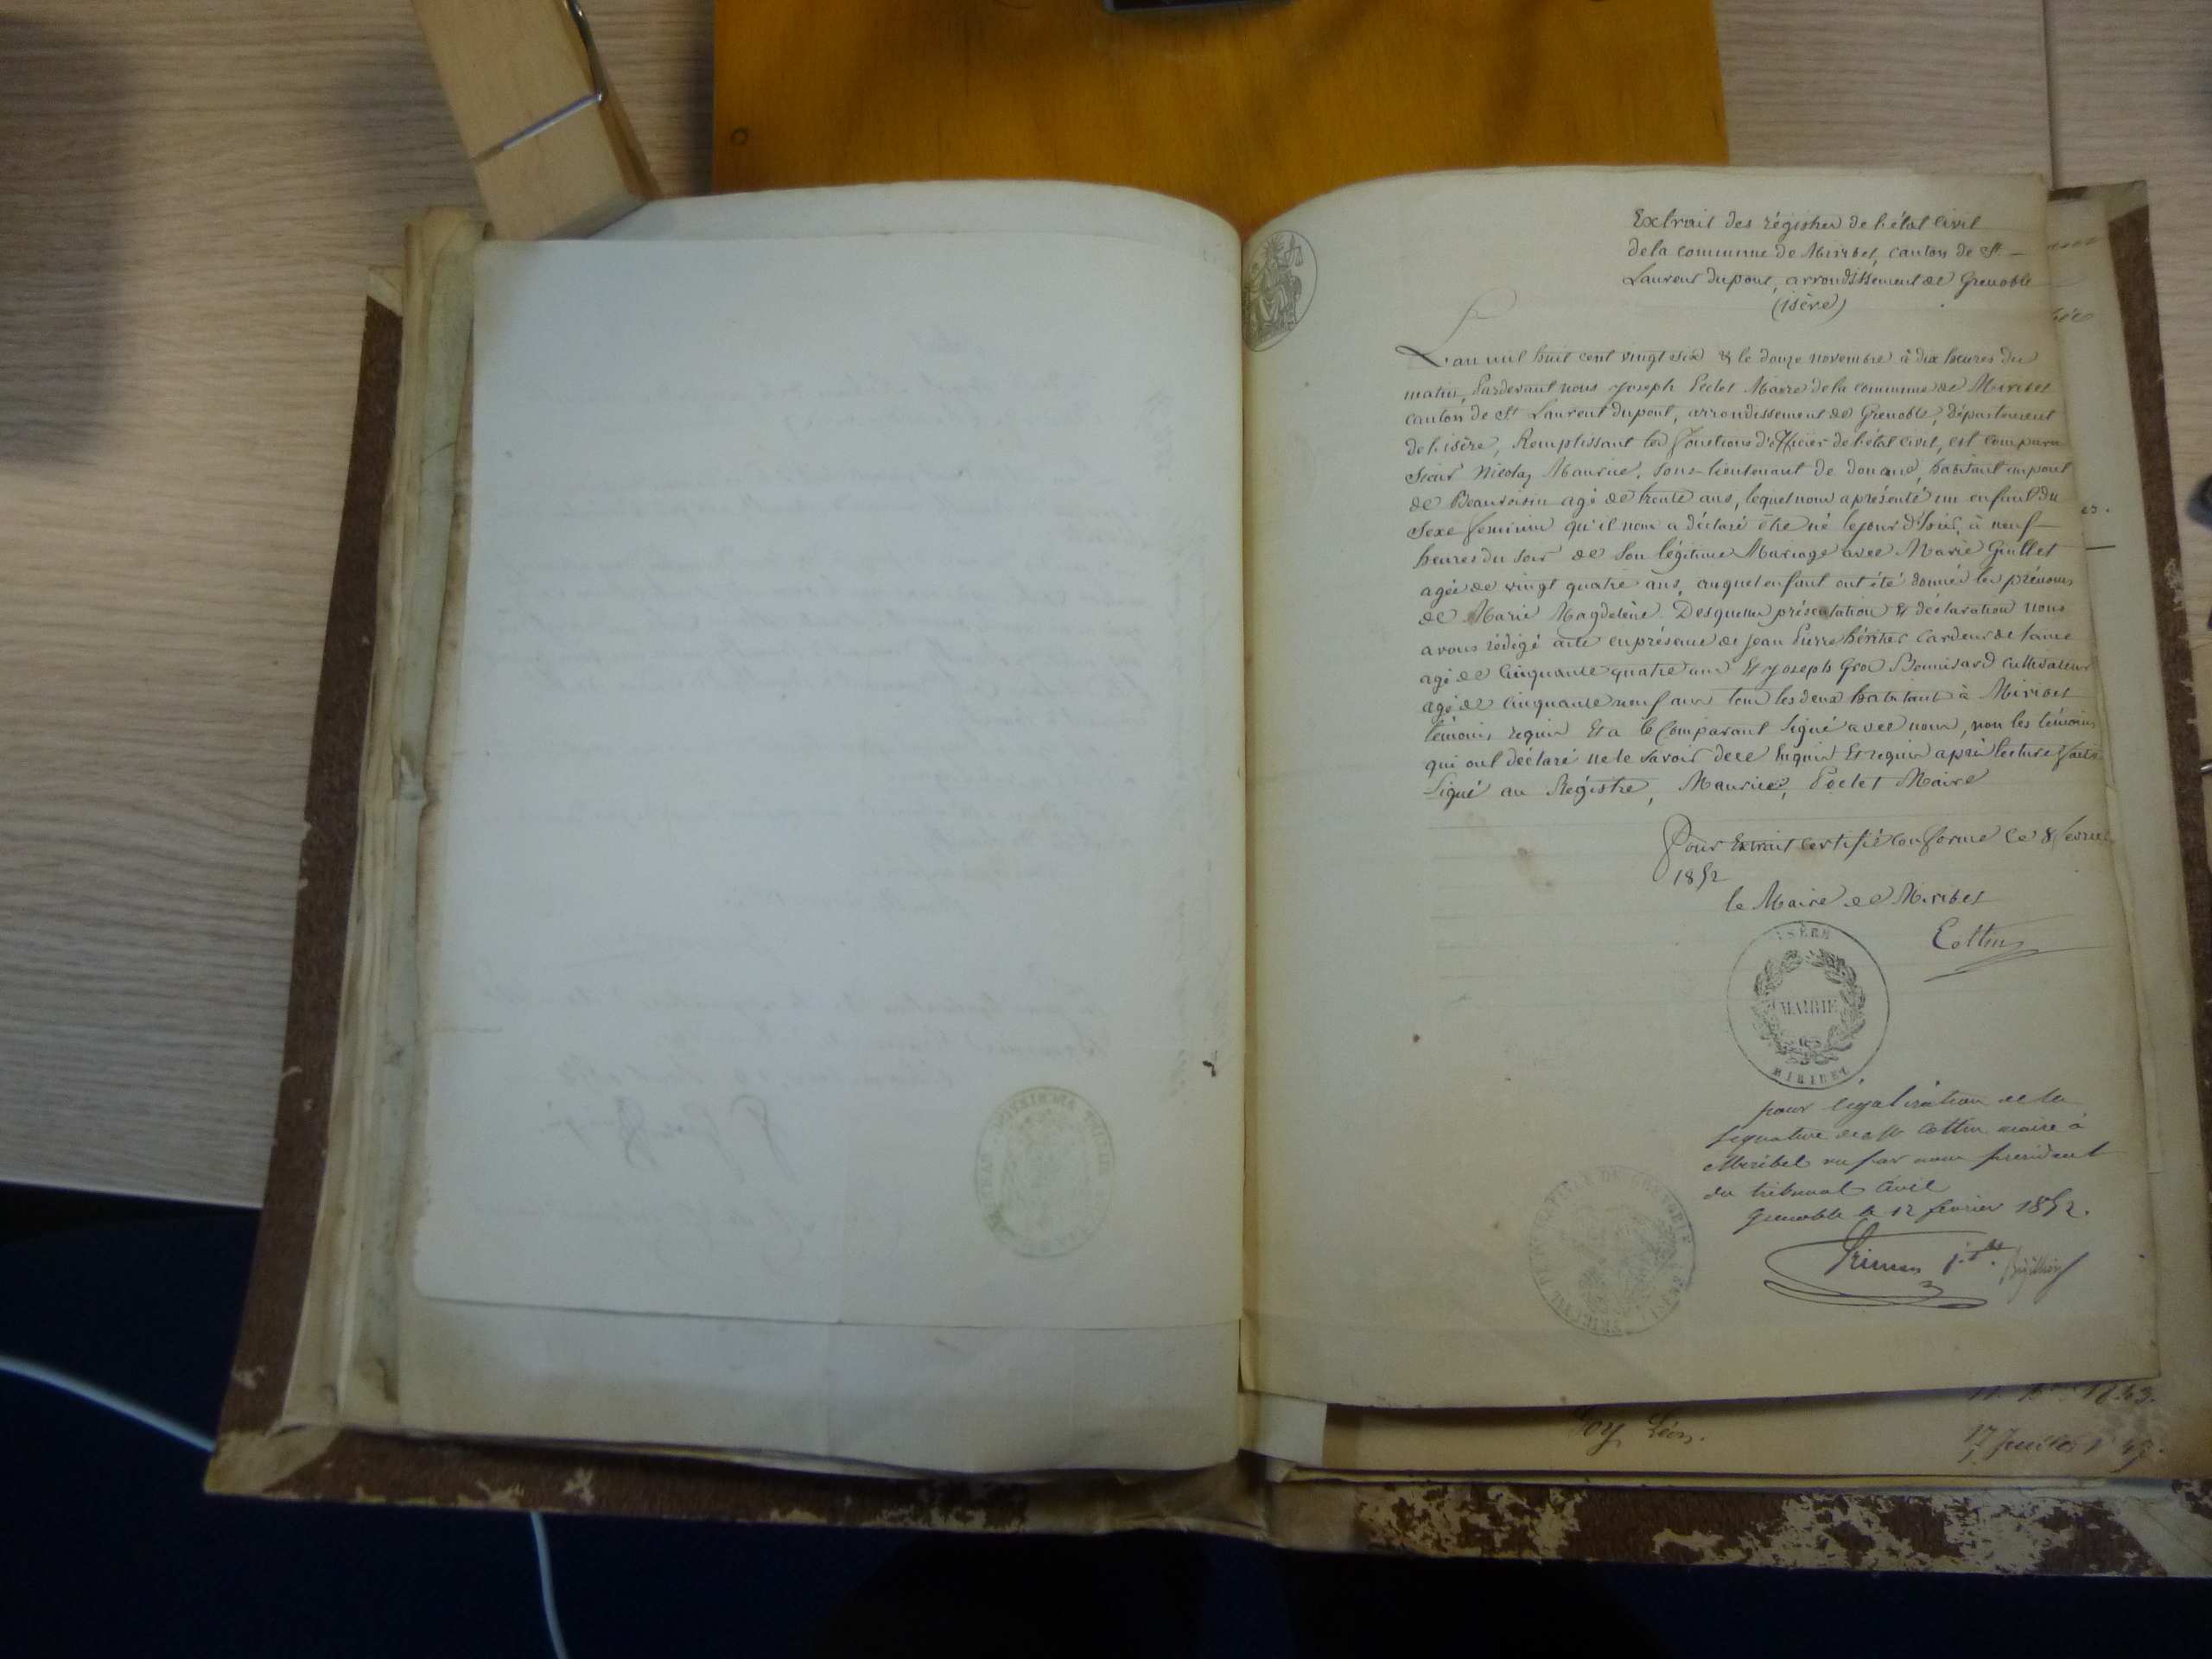 Extrait des régistres de l'état civil
de la commune de Miribel, canton de St
Laurent dupont, arrondissement de Grenoble
(isère)
L'an mil huit cent vingt six & le douze novembre à dix heures du
matin, Pardevant nous Joseph Péclet Maire de la commune de Miribel
canton de St Laurent dupont, arrondissement de Grenoble, Département
de l'isère, Remplissant les fonctions d'officier de l'état civil, est comparu
Sieur Nicolas Maurice, sous-lieutenant de douane, habitant au pont
de Beauvoisin agé de trente ans, lequel nous a présenté un enfant du
sexe feminin qu'il nous a déclaré être né le jour d'hier à neuf
heures du soir de son légitime Mariage avec Marie Guillet
agée de vingt quatre ans, auquel enfant ont été donnés les prénoms
de Marie Magdeleine. Desquelles présentation & déclaration nous
avons rédigé acte en présence de Jean Pierre héritier Cardeur de laine
agé de cinquante quatre ans & Joseph Gros Bonnivard cultivateur
agé de cinquante neuf ans tous les deux habitant à Miribel
témoins requis & a le Comparant signé avec nous, non les témoins
qui ont déclaré ne le savoir de ce enquis & requis après lecture faite
Signé au Régistre, Maurice, Péclet Maire
Pour Extrait certifié conforme le 8 février
1852
le Maire de Miribel
Cottin
ISÈRE
MAIRIE
MIRIBEL
pour légalisation de la
signature de Mr Cottin maire à
Miribel vu par nous président
du tribunal civil
Grenoble le 12 février 1852.
Léon.
17 Juillet